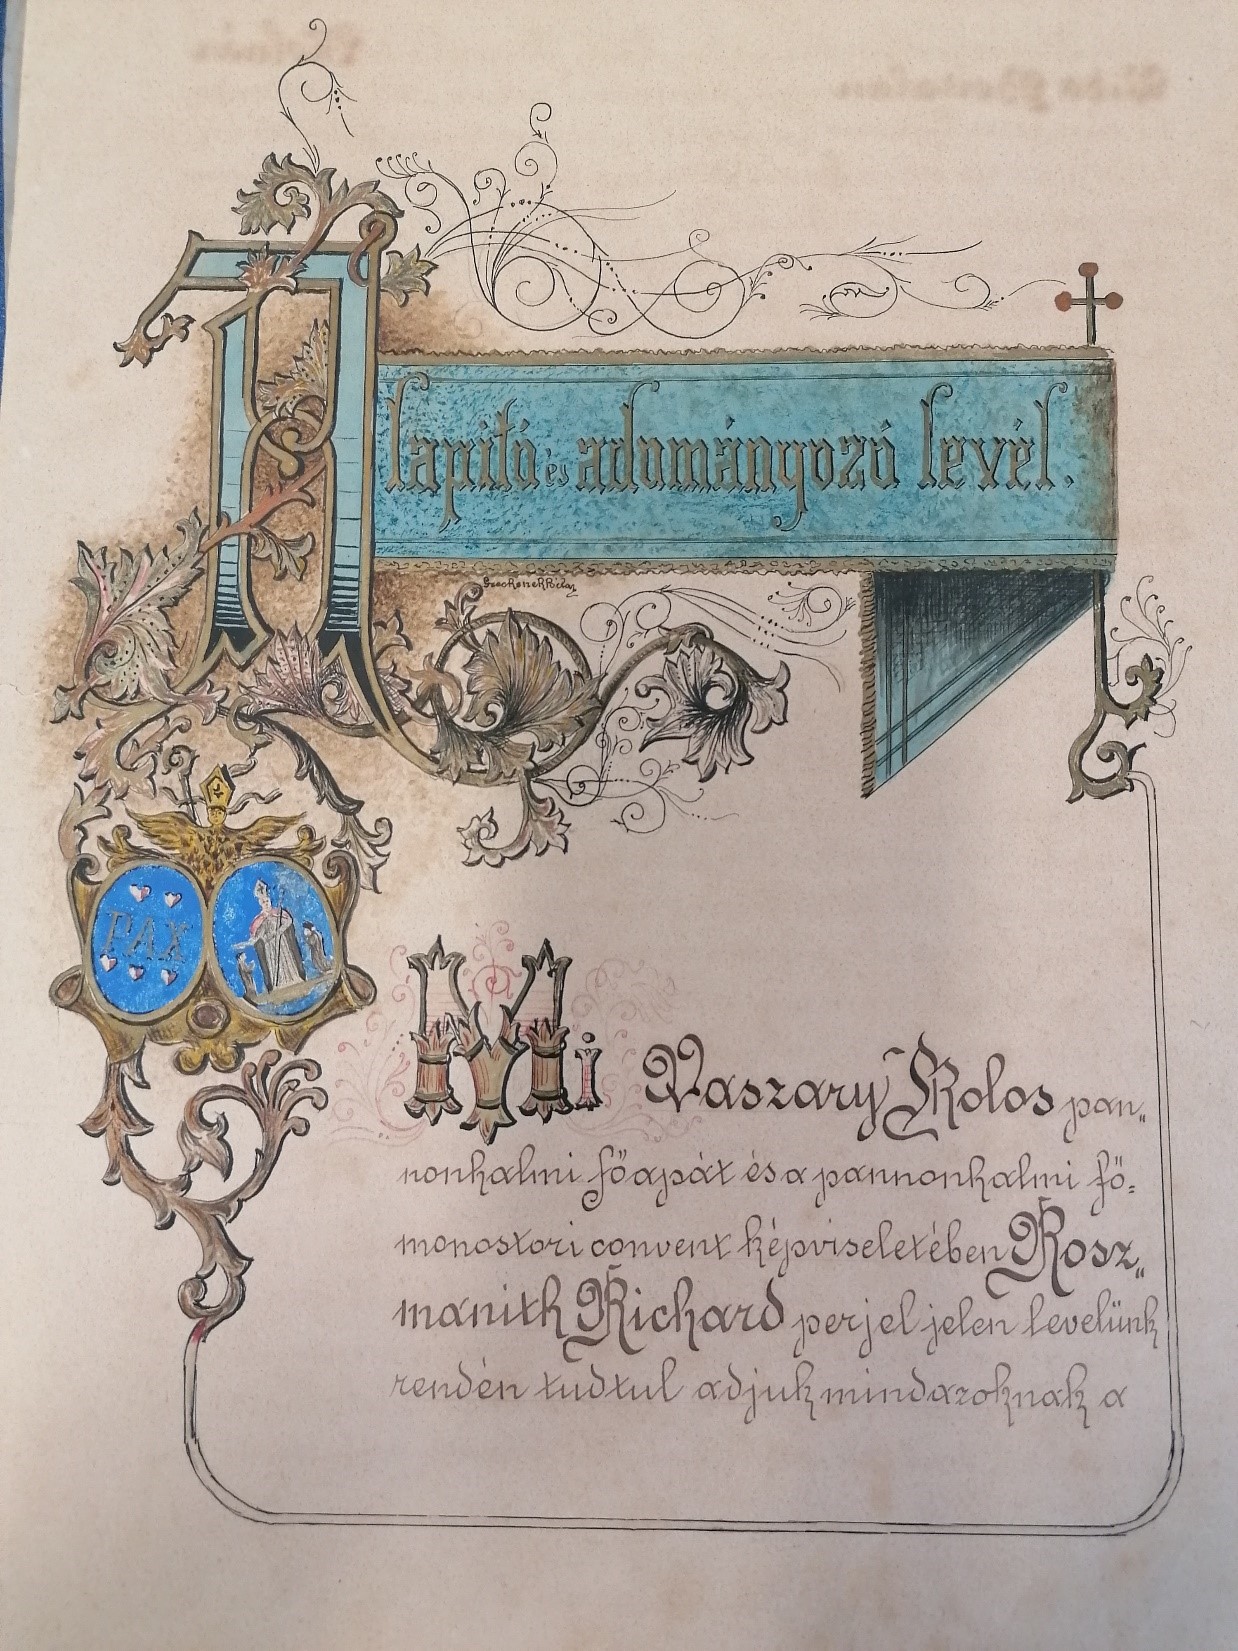 Alapító és adományozó levél.
PAX
Mi Vaszary Kolos pan„
nonhalmi főapát és a pannonhalmi fő=
monostori convent képviseletében Rosz„
manith Richard perjel jelen levelünk
rendén tudtul adjuk mindazoknak a